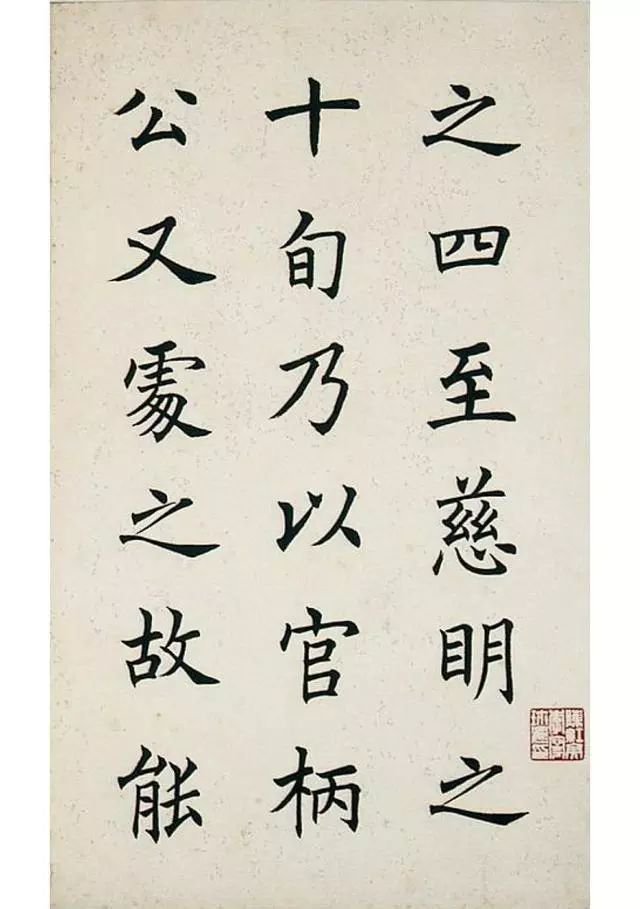 之四至慈眀之
十旬乃以官柄
公又處之故能